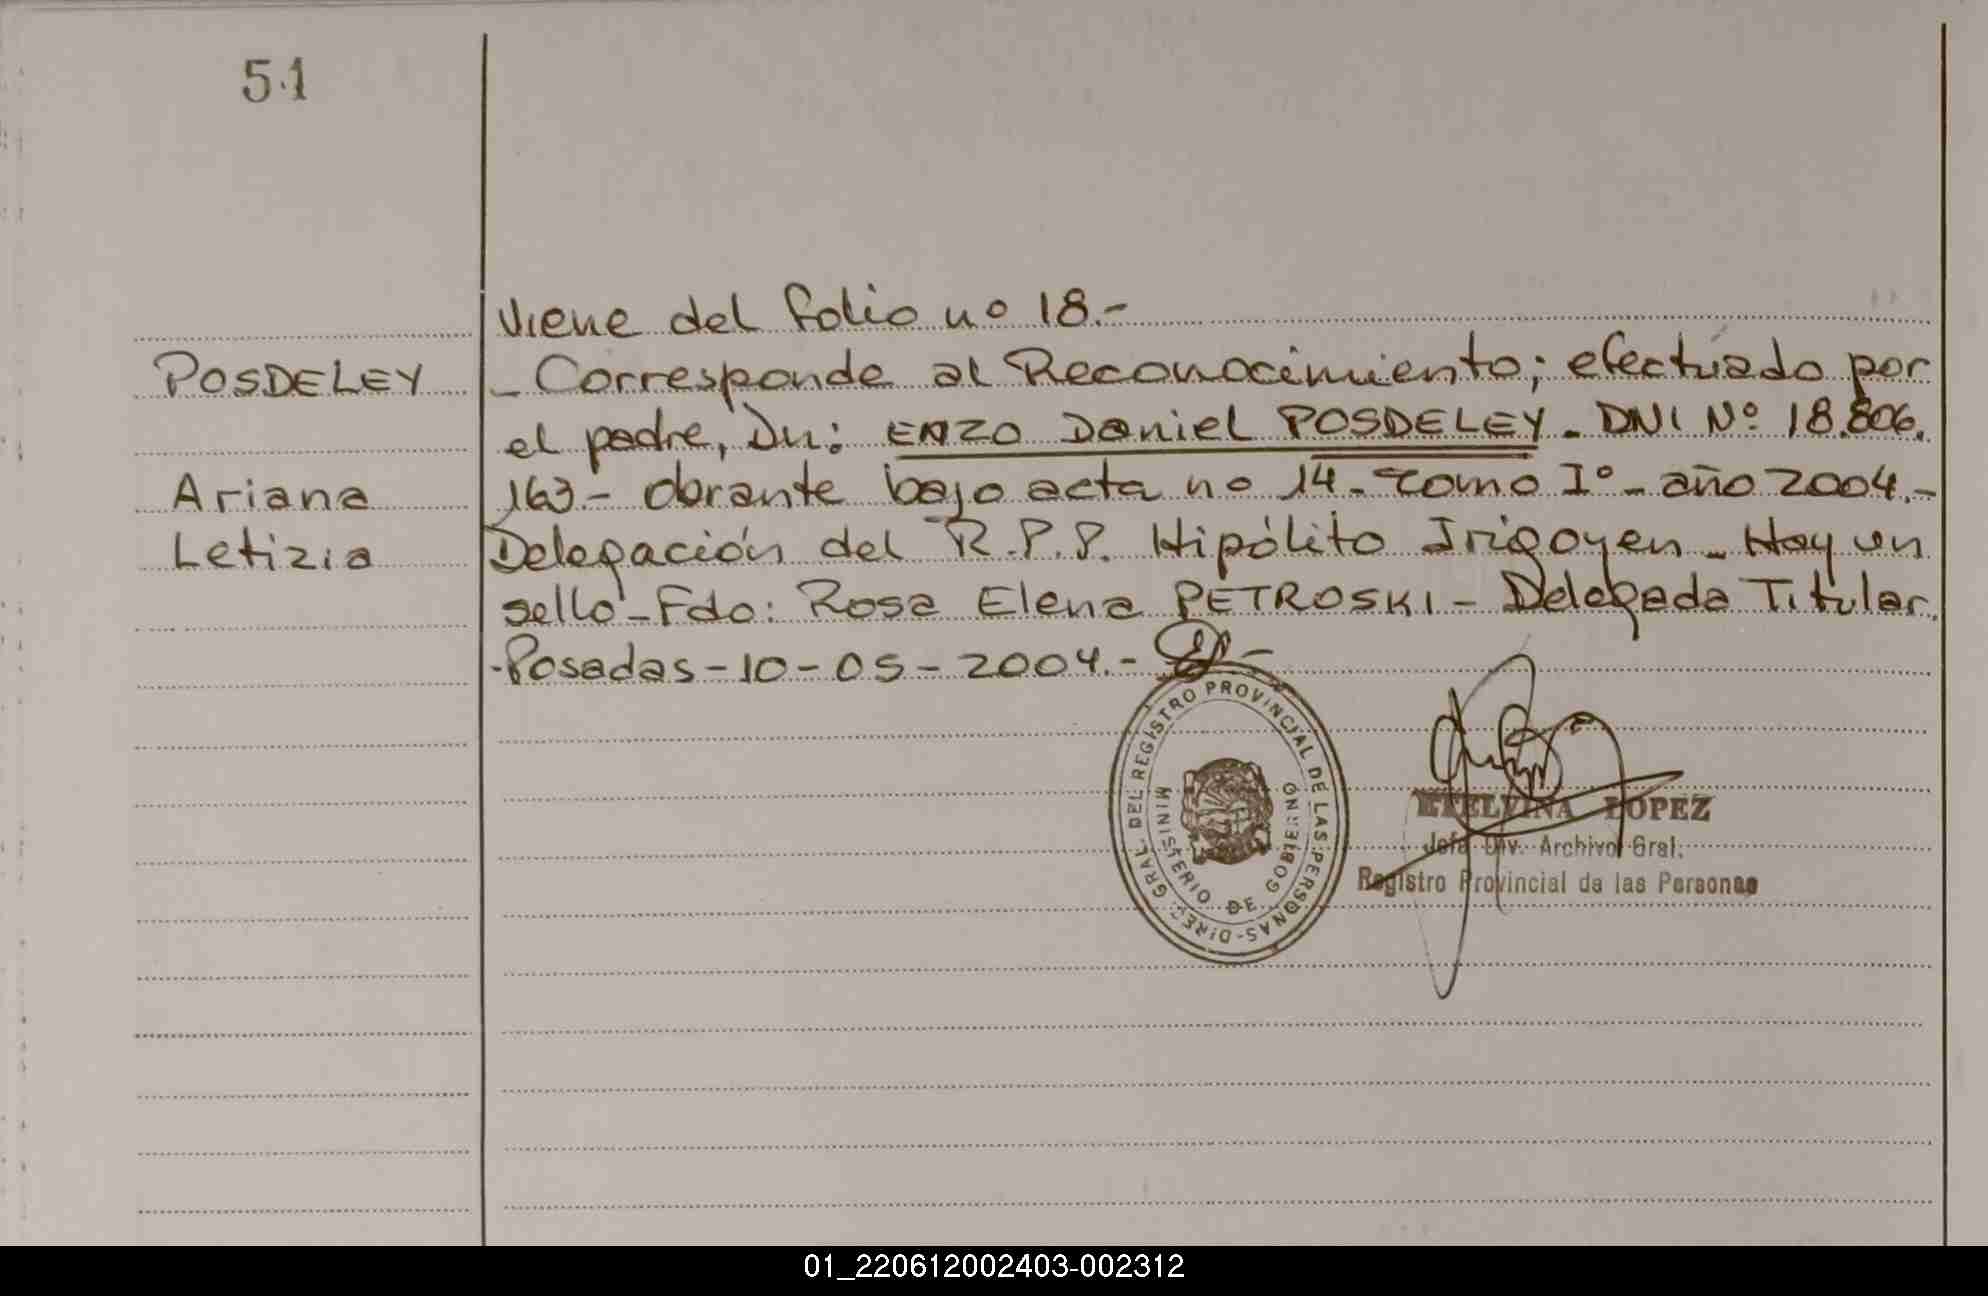 51
Viene del folio no 18.-
POSDELEY
- Corresponde al Reconocimiento; efectuado por
el padre, Dn: ENZO Daniel POSDELEY - DNI Nº 18.806.
Ariana
163 - obrante bajo acta no 14 - Tomo Iº - año 2004.-
Letizia
Delegación del R.P.P. Hipólito Irigoyen - Hay un
sello - Fdo: Rosa Elena PETROSKI - Delegada Titular.
- Posadas - 10 - 05 - 2004.-
DIREC. GRAL. DEL REGISTRO PROVINCIAL DE LAS PERSONAS -
MINISTERIO DE GOBIERNO
ETELVINA LOPEZ
Jefa Div. Archivo Gral.
Registro Provincial de las Personas
01_220612002403-002312